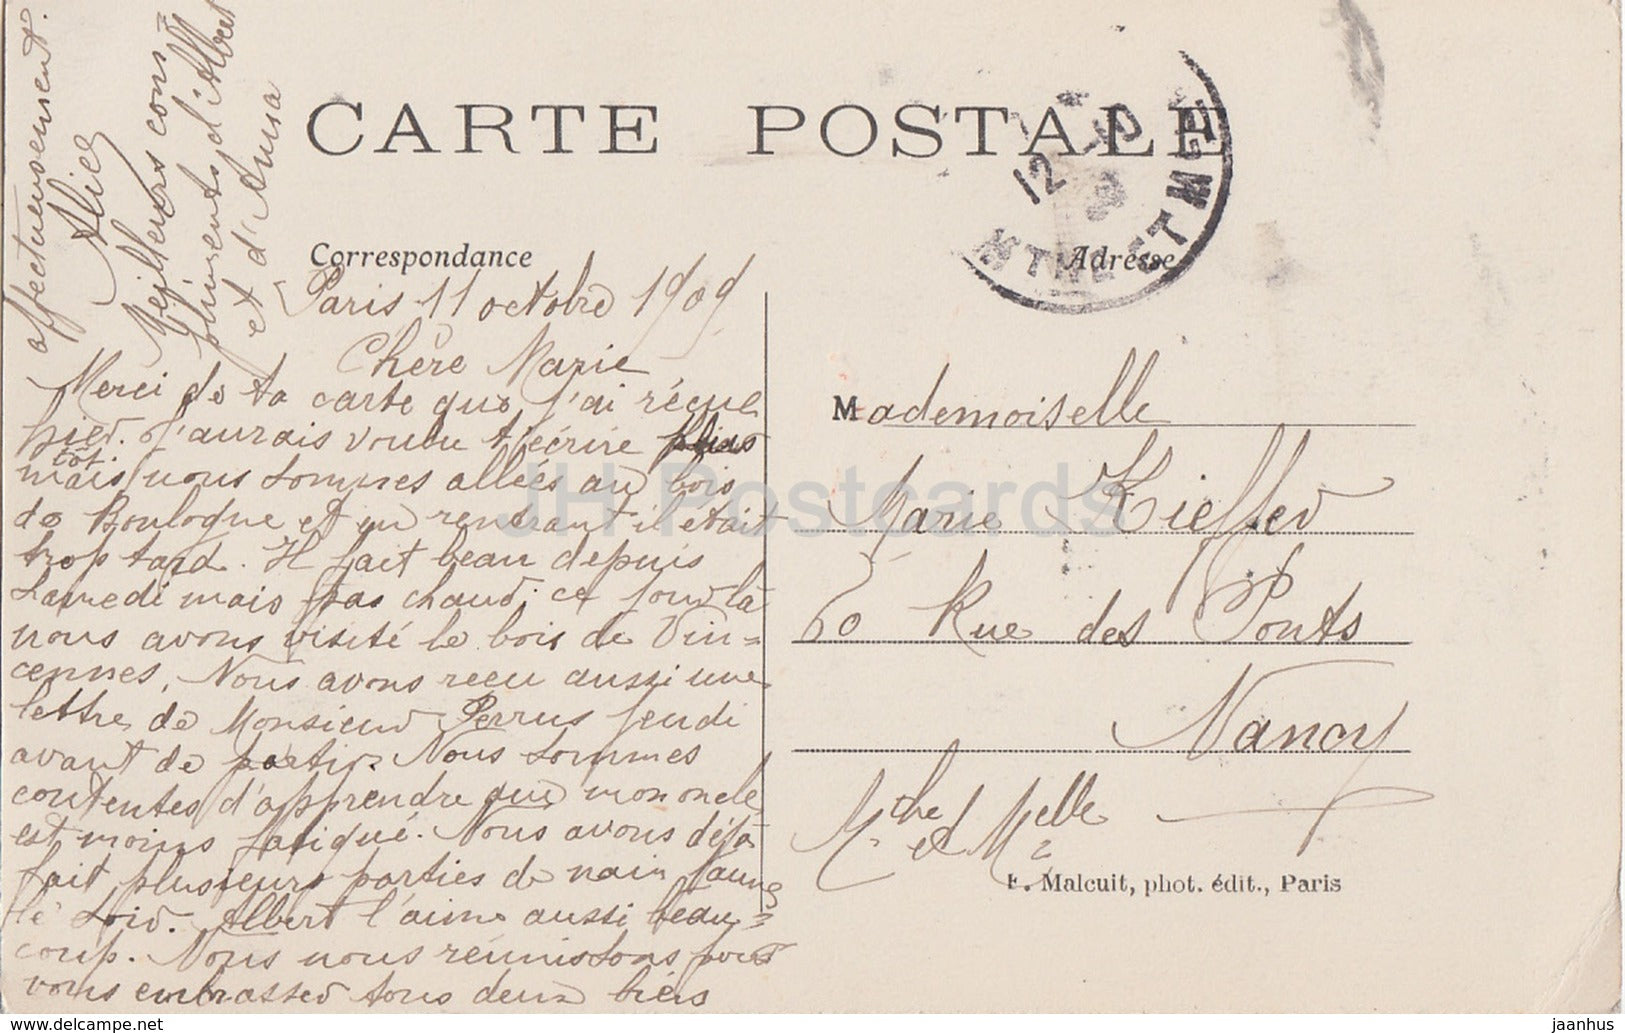 CARTE POSTALE
Correspondance
Adresse
Paris 11 octobre 1909
Chère Marie
Merci de ta carte que j'ai reçue
hier. J'aurais voulu t'écrire plus
tôt.
mais nous sommes allées au bois
de Boulogne et en rentrant il était
trop tard. Il fait beau depuis
Samedi mais pas chaud. ce jour là
nous avons visité le bois de Vin=
cennes. Nous avons reçu aussi une
lettre de Monsieur Perrus jeudi
avant de partir. Nous sommes
contentes d'apprendre que mon oncle
est moins fatigué. Nous avons déjà
fait plusieurs parties de nain jaune
le soir. Albert l'aime aussi beau=
coup. Nous nous réunissons pour
vous embrasser tous deux bien
affectueusement.
Alice
Meilleurs com=
pliments d'Albert
et d'Anna
Mademoiselle
Marie Kieffer
60 Rue des Ponts
Nancy
Mthe et Melle
F. Malcuit, phot. édit., Paris
12 -10
MTHE ET M
JH Postcards
www.delcampe.net
jaanhus